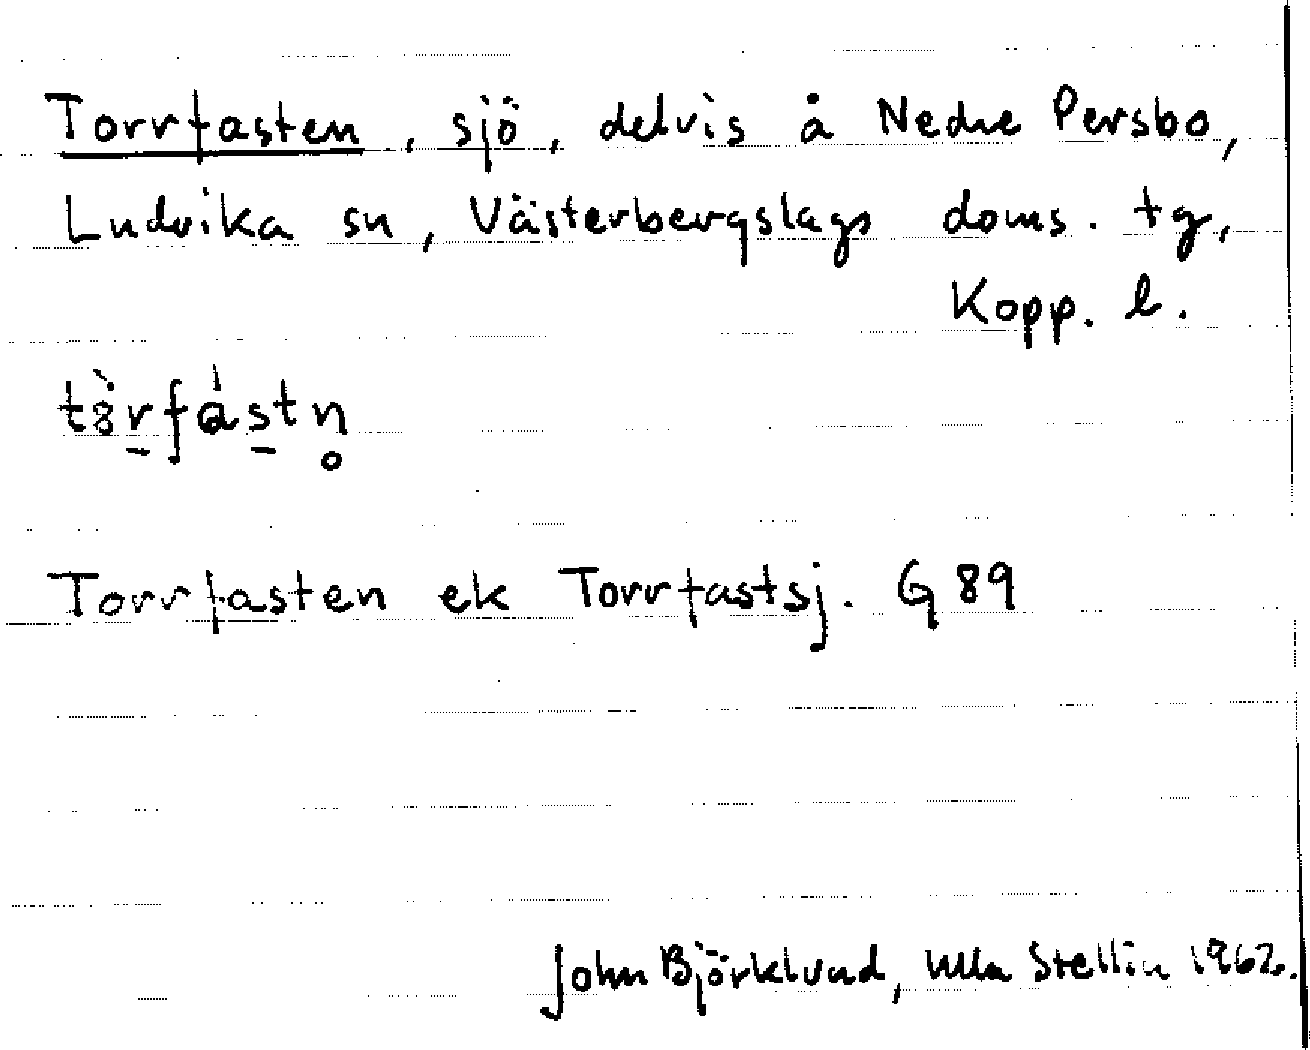 Torrfasten, sjö, delvis å Nedre Persbo,
Ludvika sn, Västerbergslags doms. tg,
Kopp. l.
tȯ̀rfástn̥
Torrfasten ek Torrfastsj. G 89
John Björklund, Ulla Stellin 1962.